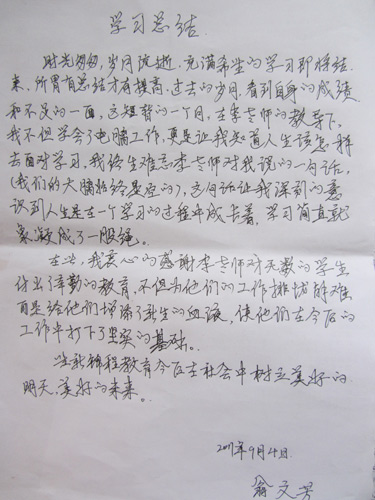 学习总结
时光匆匆，岁月流逝，充满希望的学习即将结
束，所谓有总结才有提高，过去的岁月，看到自身的成绩
和不足的一面，这短暂的一个月，在李老师的教导下。
我不但学会了电脑工作，更是让我知道人生该怎样
去面对学习，我终生难忘李老师对我说的一句话，
(我们的大脑始终是空的)，这句话让我深刻的意
识到人生是在一个学习的过程中成长着，学习简直就
象凝成了一股绳。
在次，我衷心的感谢李老师对无数的学生
付出了辛勤的教育，不但为他们的工作排忧解难
而是给他们增添了新生的血液，使他们在今后的
工作中打下了坚实的基础。
锦程教育今后在社会中树立美好的
明天，美好的未来。
2011年9月4日
翁文芳